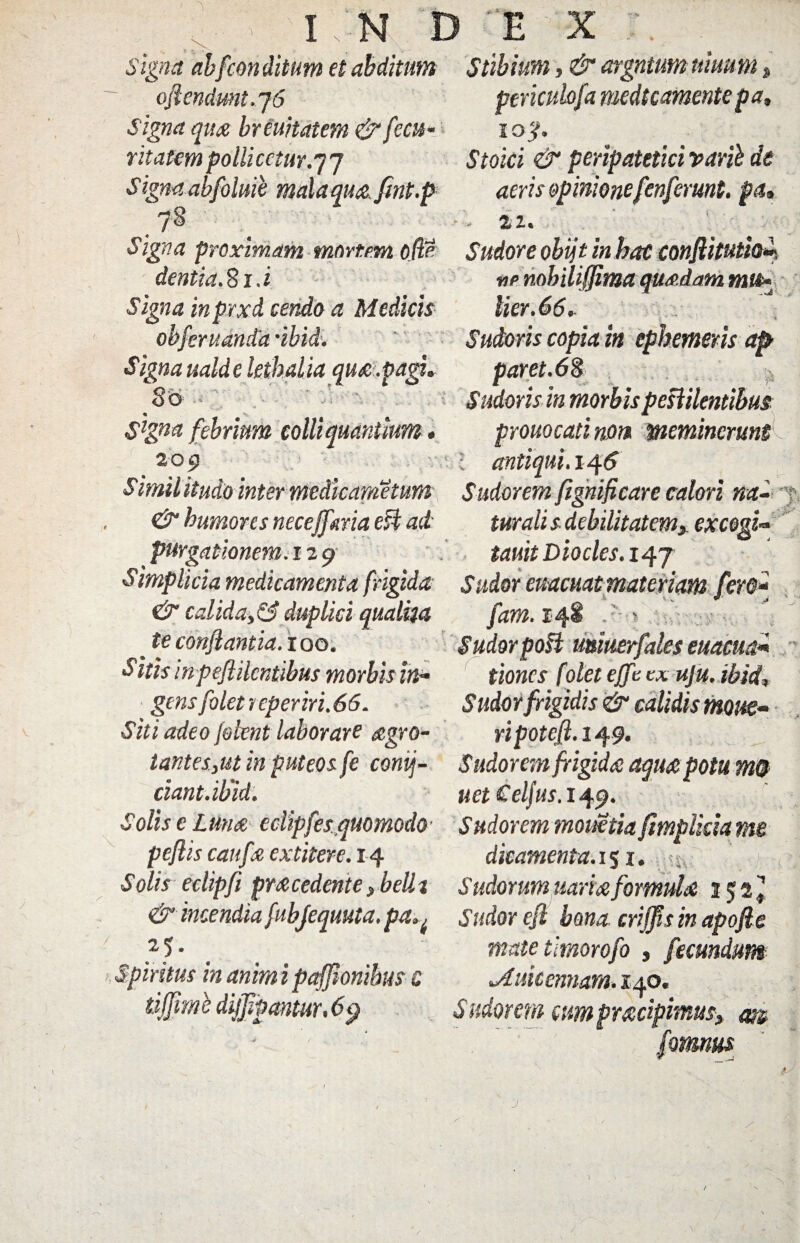 INDEX
Signa abſconditum et abditum
oſtendunt.76
Signa quæ breuitatem & ſecu-
ritatem pollicetur.77
Signa abſoluiè mala quæ ſint.p
78
Signa proximam mortem oſtē
dentia.81.i
Signa in prxd cendo a Medicis
obſeruanda ibid.
Signa ualde lethalia quæ.pagi.
80
Signa febrium colliquantium.
209
Similitudo inter medicamētum
& humores neceſſaria eſt ad
purgationem.129
Simplicia medicamenta frigida
& calida,& duplici qualita
te conſtantia.100.
Sitis in peſtilentibus morbis in-
gens ſolet reperiri.66.
Siti adeo ſolent laborare ægro-
tantes,ut in puteos ſe conij-
ciant.ibid.
Solis e Lunæ eclipſes quomodo
peſtis cauſæ extitere.14
Solis eclipſi præcedente, belli
& incendia ſubſequuta. pa.
25.
Spiritus in animi paſſionibus c
tiſſimè diſſipantur.69
Stibium, & argntum uiuum,
periculoſa medicamente pa.
103.
Stoici & peripatetici variè de
aeris opinione ſenſerunt. pa.
22.
Sudore obijt in hac conſtitutio-
ne nobiliſſima quædam mu-
lier.66.
Sudoris copia in ephemeris ap
paret.68
Sudoris in morbis peſtilentibus
prouocati non meminerunt
antiqui.146
Sudorem ſignificare calori na-
turalis debilitatem, excogi-
tauit Diocles.147
Sudor euacuat materiam ſero-
ſam.148
Sudor poſt uniuerſales euacua-
tiones ſolet eſſe ex uſu. ibid.
Sudor frigidis & calidis moue-
ri poteſt.149.
Sudorem frigidæ aquæ potu mo
uet Celſus.149.
Sudorem mouētia ſimplicia me
dicamenta.151.
Sudorum uariæ formulæ 152
Sudor eſt bona criſſis in apoſte
mate timoroſo, ſecundum
Auicennam.140.
Sudorem cum præcipimus, an
ſomnus